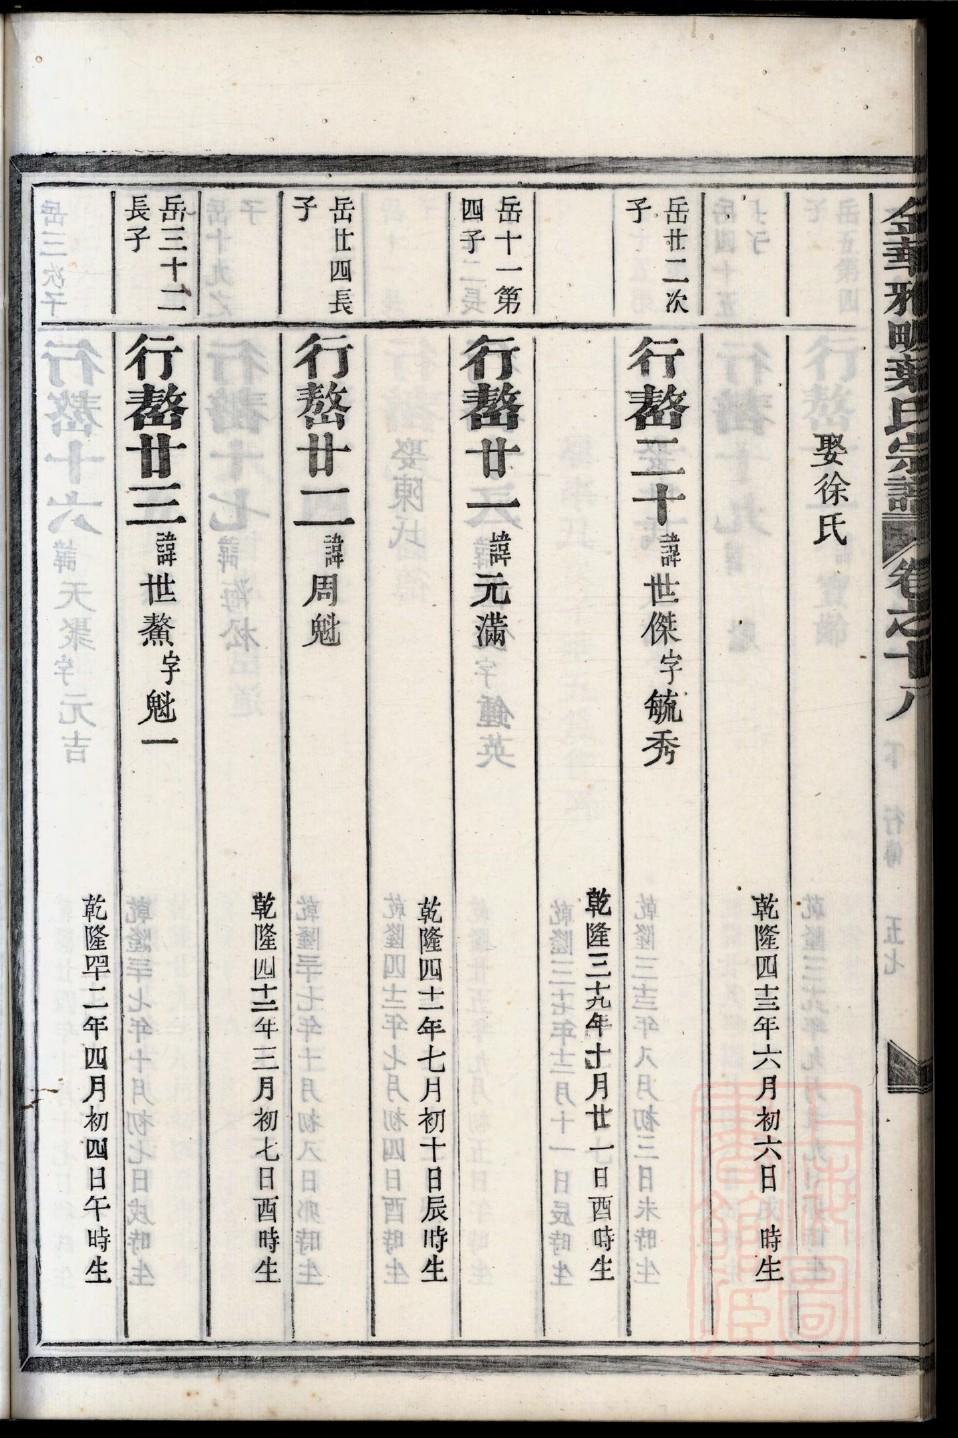 金華雅畈葉氏宗譜 卷之十八
娶徐氏
乾隆四十三年六月初六日 時生
岳廿二次子
行嶅二十 諱世傑字毓秀
乾隆三十九年十月廿一日酉時生
岳十一第四子
行嶅廿一 諱元滿
乾隆四十二年七月初十日辰時生
岳廿四長子
行嶅廿二 諱周魁
乾隆四十二年三月初七日酉時生
岳三十二長子
行嶅廿三 諱世鰲字魁一
乾隆四十二年四月初四日午時生